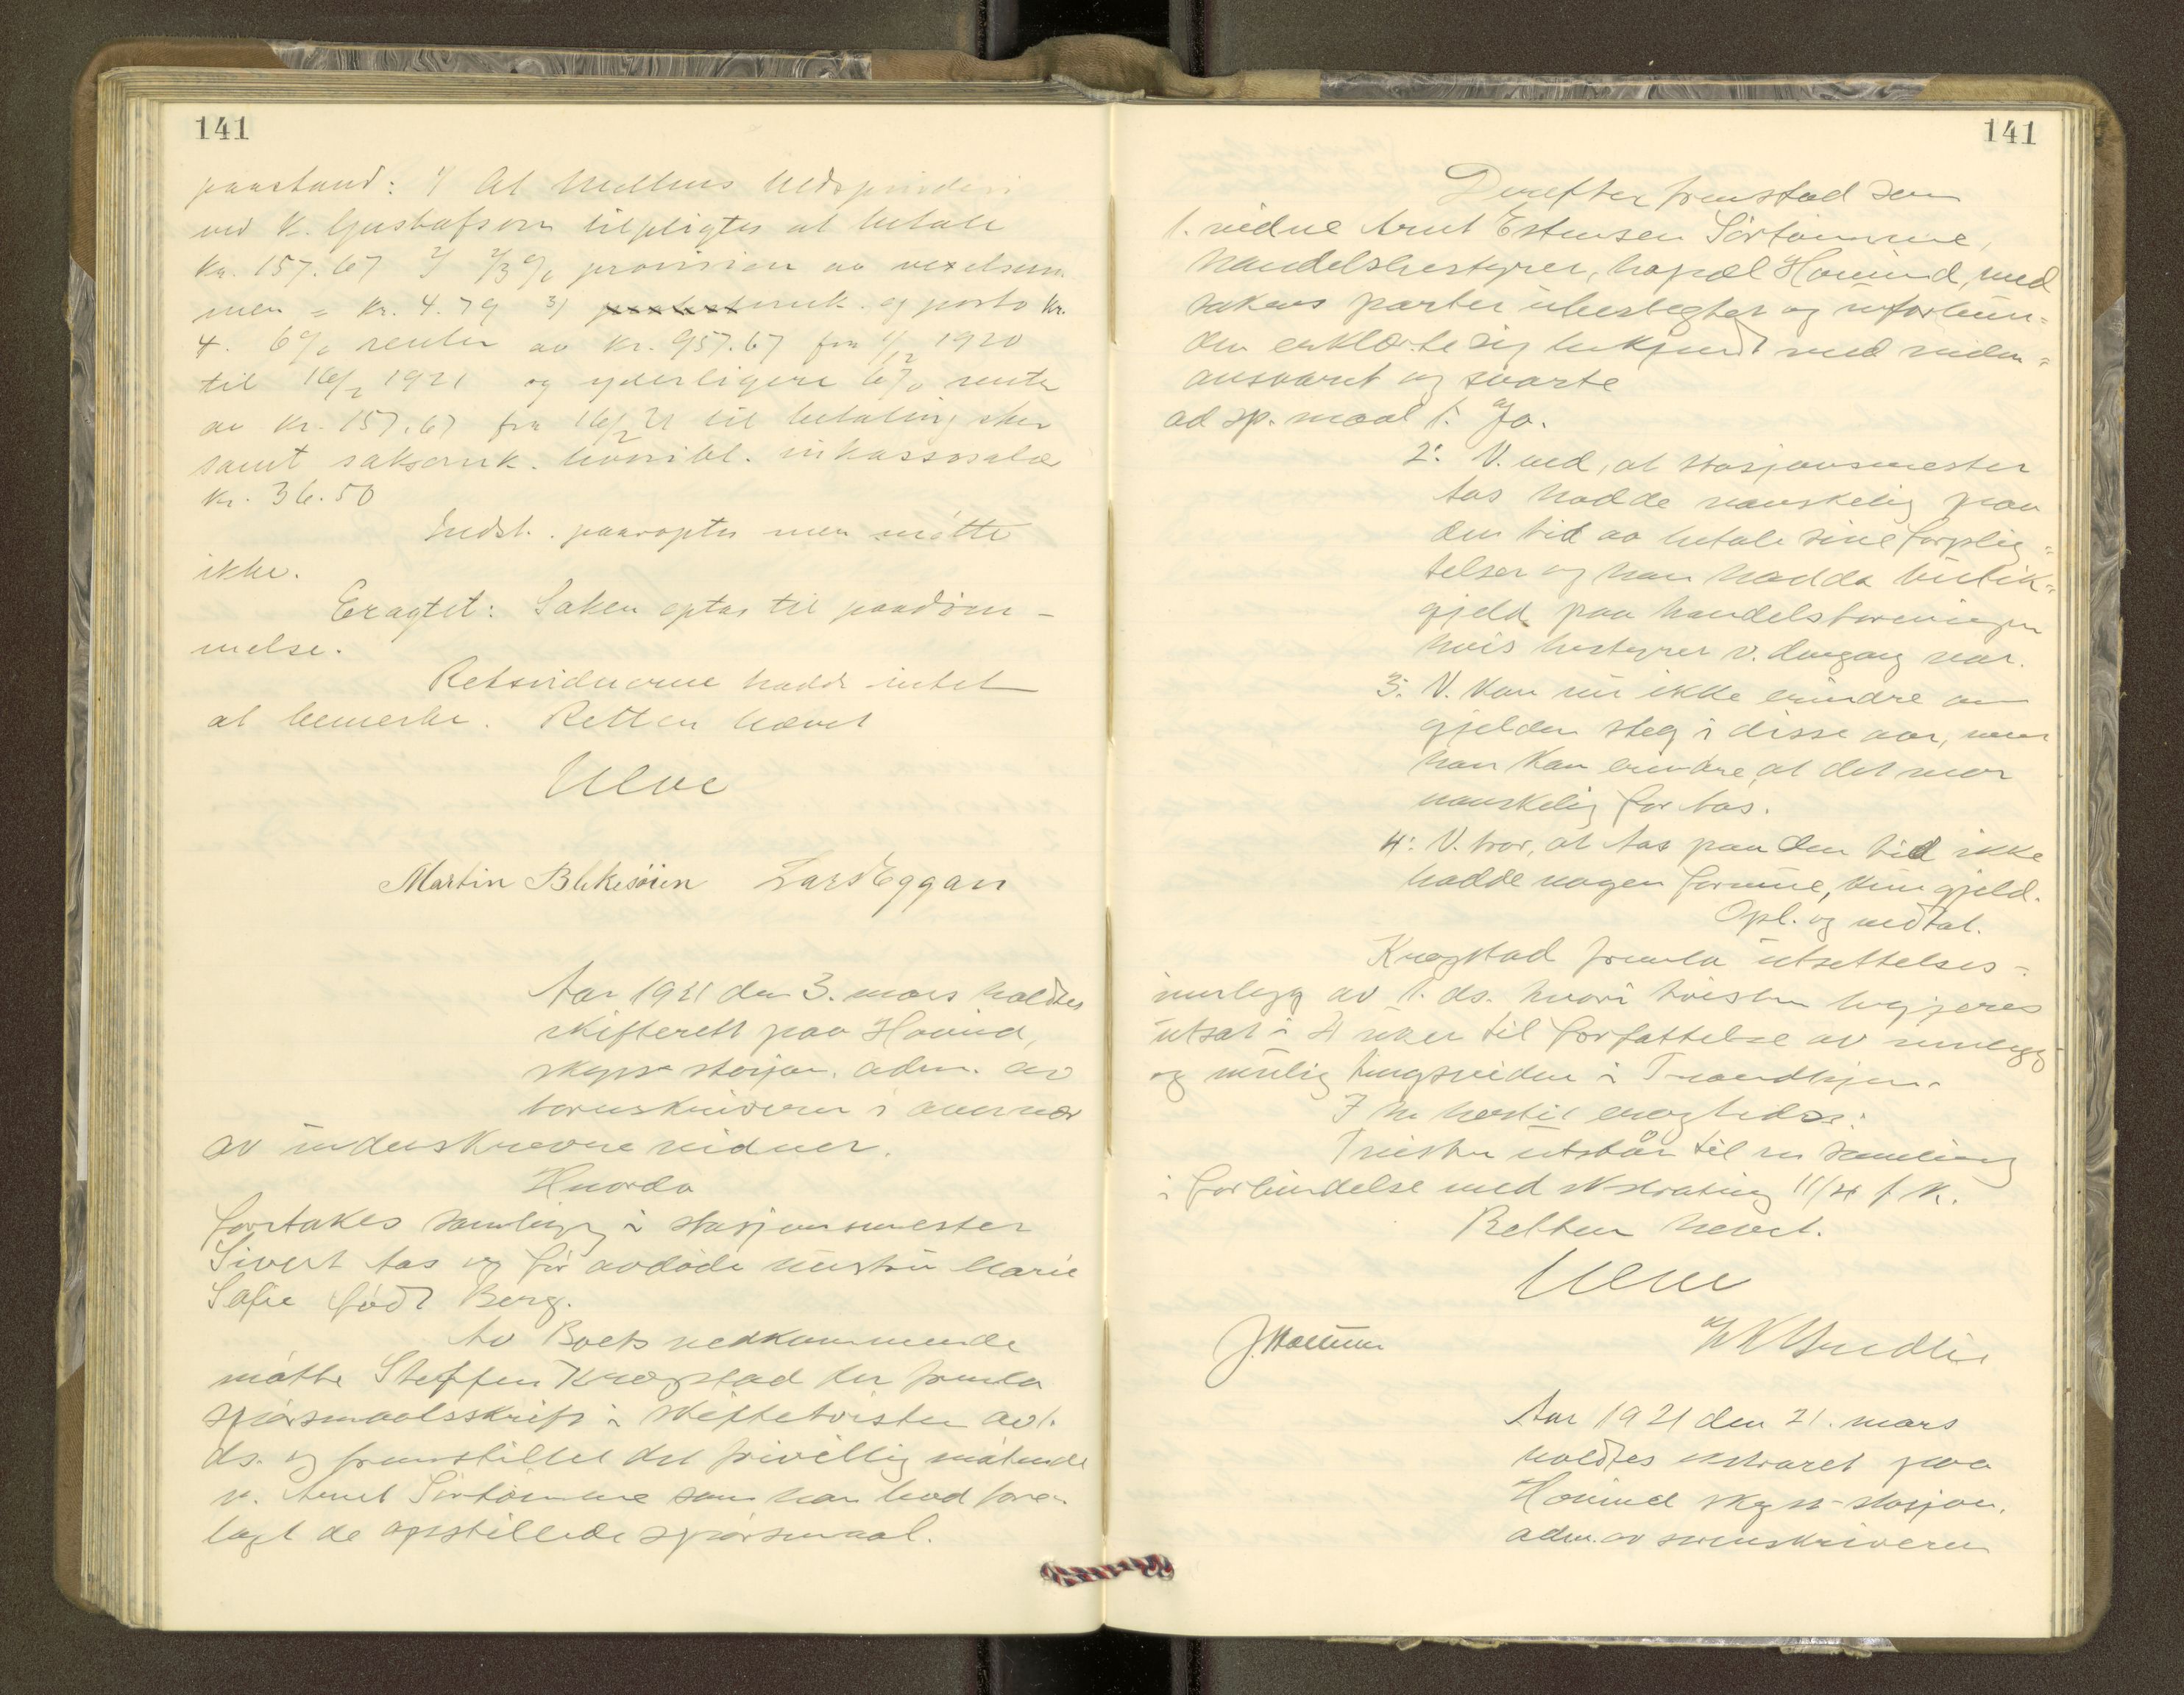 141
paastand: 1/ At Melhus Uldspinderi
ved K. Gustafson tilpligtes at betale
kr. 157.67 2/ 1/3 % provision av vexelsum-
men = kr. 4.79 3/ omk. og porto kr.
4. 6% renter av kr. 957.67 fra 1/12 1920
til 16/2 1921 og yderligere 6% renter
av kr. 157.67 fra 16/2 21 til betaling sker
samt saksomk. heri ibl. inkassosalær
kr. 36.50
Indst. paaroptes men møtte
ikke.
Eragtet: Saken optas til paadøm-
melse.
Retsvidnerne hadde intet
at bemerke. Retten hævet
Ulve
Martin Blekesøien Lars Eggan
Aar 1921 den 3. mars holdtes
skifterett paa Hovind,
skyss stasjon. adm. av
sorenskriveren i overvær
av underskrevne vidner.
Hvorda
foretakes samling i stasjonsmester
Sivert Aas og før avdøde hustru Marie
Sofie født Berg.
Av Boets vedkommende
møtte Steffen Krogstad der fremla
spørsmaalsskrift i skiftetvisten av 1.
ds. og fremstillet det frivillig møtende
v. Arnt Sørtømme som han bad fore-
lagt de opstillede spørsmaal.
141
Derefter fremstod som
1. vidne Arnt Estensen Sörtömme,
handelsbestyrer, bopæl Hovind, med
sakens parter ubeslegtet og uforbun=
den erklærte sig bekjendt med vidne=
ansvaret og svarte
ad sp. maal 1: Ja.
2: V. ved, at stasjonsmester
Aas hadde vanskelig paa
den tid aa betale sine forplig=
telser og han hadde butik=
gjeld paa handelsforeningen
hvis bestyrer v. dengang var.
3: V. kan nu ikke erindre om
gjelden steg i disse aar, men
han kan erindre, at det var
vanskelig for Aas.
4: V. tror, at Aas paa den tid ikke
hadde nogen formue, kun gjeld.
Opl. og vedtat.
Krogstad fremla utsettelses-
innlegg av 1. ds. hvori tvisten begjæres
utsat i 4 uker til forfattelse av innlegg
og mulig tingsvidne i Trondhjem.
I h. hertil eragtedes:
Tvisten utstår til en samling
i forbindelse med ekstrating 11/4 f. k.
Retten hevet.
Ulve
J. Hovind
Aar 1921 den 21. mars
holdtes ekstraret paa
Hovind skyss-stasjon.
adm. av sorenskriveren